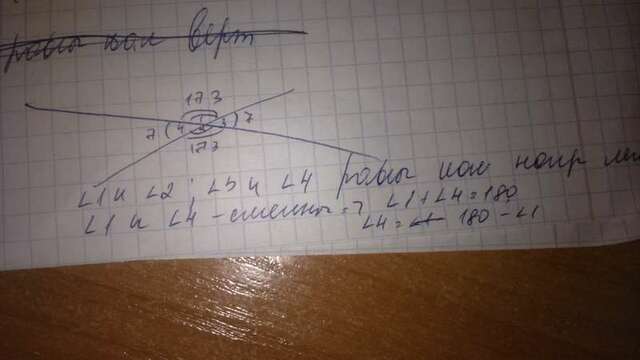 равы как верт
173
7 ( 4 1 3 ) 7
2
173
∠1 и ∠2; ∠3 и ∠4 равы как напр
∠1 и ∠4 - смежны => ∠1 + ∠4 = 180
∠4 = 180 - ∠1